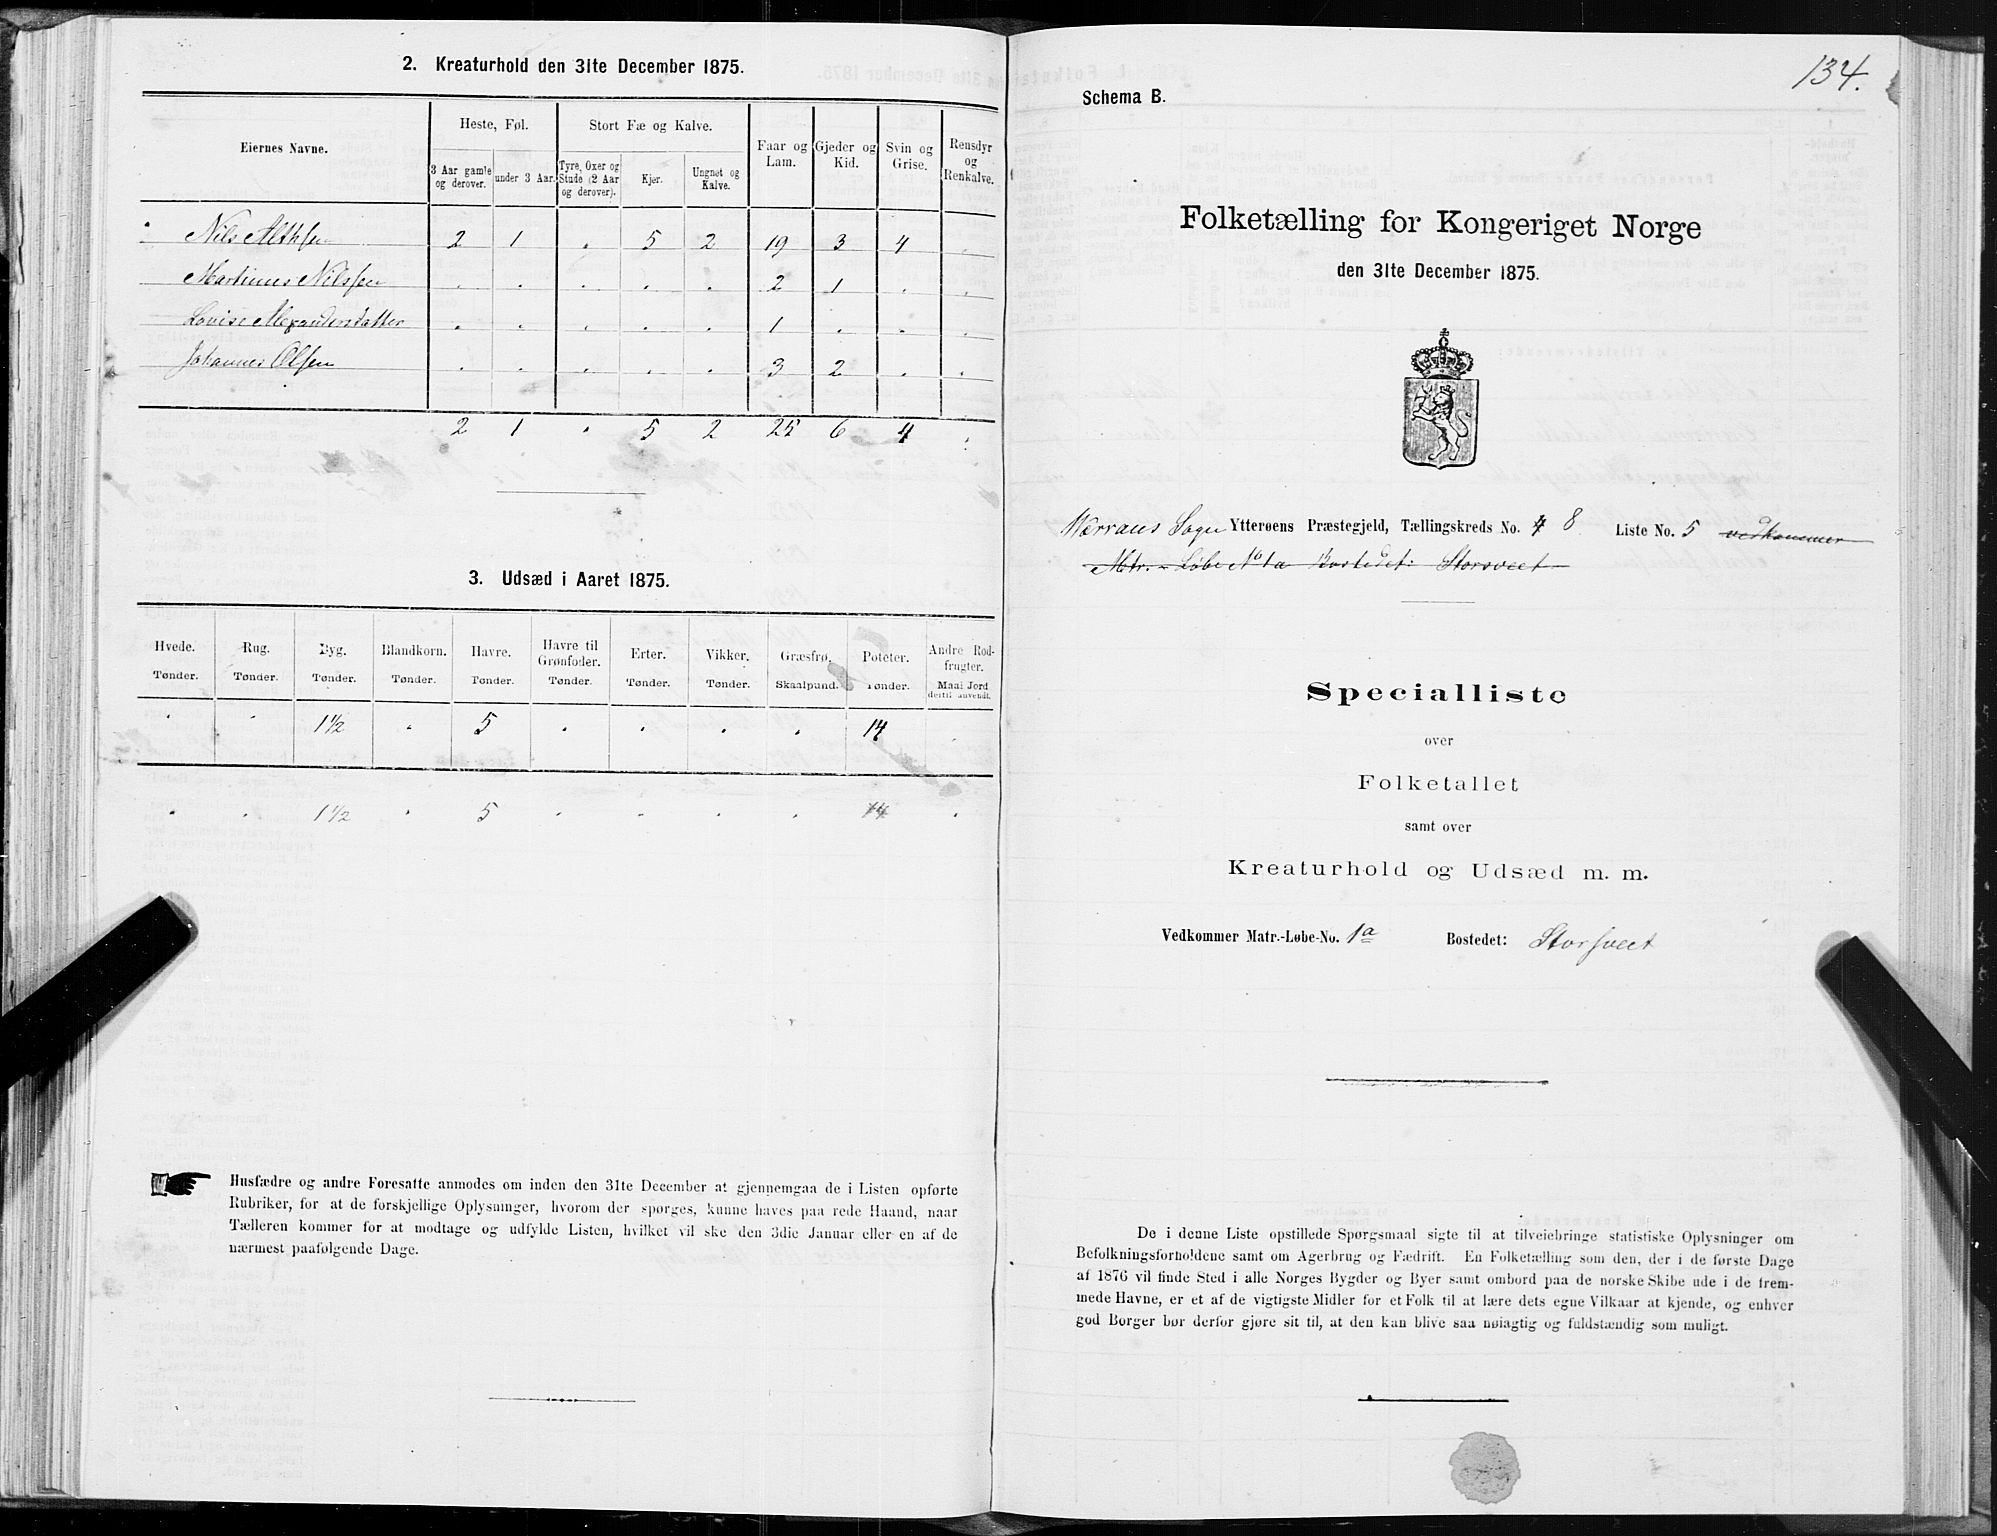 2. Kreaturhold den 31te December 1875.
Eiernes Navne.
Heste, Føl.
Stort Fæ og Kalve.
Faar og Lam.
Gjeder og Kid.
Svin og Grise.
Rensdyr og Renkalve.
3 Aar gamle og derover.
under 3 Aar.
Tyre, Oxer og Stude (2 Aar og derover).
Kjør.
Ungnøt og Kalve.
Nils 2 1 " 5 2 19 3 4 "
Martinus Nilssen " " " " " 2 1 " "
Lovise Alexandersdatter " " " " " 1 " " "
Johannes Olsen " " " " " 3 2 " "
2 1 " 5 2 25 6 4 "
3. Udsæd i Aaret 1875.
Hvede. Rug. Byg. Blandkorn. Havre. Havre til Grønfoder. Erter. Vikker. Græsfrø. Poteter. Andre Rodfrugter.
Tønder. Tønder. Tønder. Tønder. Tønder. Tønder. Tønder. Tønder. Skaalpund. Tønder. Maal Jord dertil anvendt.
" " 1 1/2 " 5 " " " " 14 "
" " 1 1/2 " 5 " " " " 14 "
Husfædre og andre Foresatte anmodes om inden den 31te December at gjennemgaa de i Listen opførte
Rubriker, for at de forskjellige Oplysninger, hvorom der spørges, kunne haves paa rede Haand, naar
Tælleren kommer for at modtage og udfylde Listen, hvilket vil ske den 3die Januar eller en af de
nærmest paafølgende Dage.
134.
Schema B.
Folketælling for Kongeriget Norge
den 31te December 1875.
Værrans Sogn Ytterøens Præstegjeld, Tællingskreds No. 4 8 Liste No. 5 vedkommer
Mtr. - Løbe No 1a Bostedet: Storsveet
Specialliste
over
Folketallet
samt over
Kreaturhold og Udsæd m. m.
Vedkommer Matr.-Løbe-No. 1a Bostedet: Storsveet
De i denne Liste opstillede Spørgsmaal sigte til at tilveiebringe statistiske Oplysninger om
Befolkningsforholdene samt om Agerbrug og Fædrift. En Folketælling som den, der i de første Dage
af 1876 vil finde Sted i alle Norges Bygder og Byer samt ombord paa de norske Skibe ude i de frem-
mede Havne, er et af de vigtigste Midler for et Folk til at lære dets egne Vilkaar at kjende, og enhver
god Borger bør derfor gjøre sit til, at den kan blive saa nøiagtig og fuldstændig som muligt.